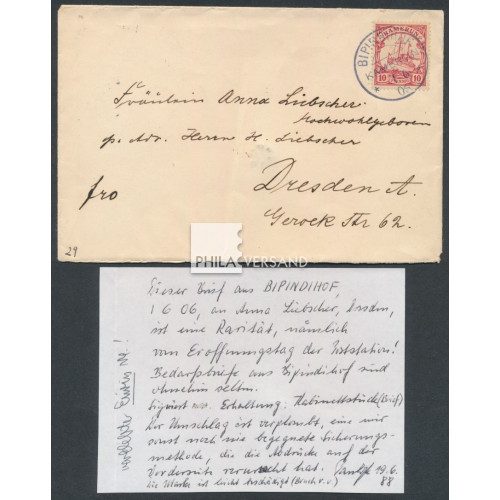 KAMERUN
10 10
BIPIN
06
Fräulein Anna Liebscher
Hochwohlgeboren
p. Adr. Herrn H. Liebscher
fro
Dresden A.
Gerock Str 62.
29
PHILA VERSAND
Dieser Brief aus BIPINDIHOF,
1 6 06, an Anna Liebscher, Dresden,
ist eine Rarität, nämlich
vom Eröffnungstag der Poststation!
Bedarfsbriefe aus Bipindihof sind
ohnehin selten.
Signiert Erhaltung: Kabinettstück (Brief)
Der Umschlag ist verplombt, eine mir
sonst noch nie begegnete Sicherungs-
methode, die die Abdrücke auf der
Vorderseite verursacht hat. 19.6.
88
Die Marke ist leicht beschädigt